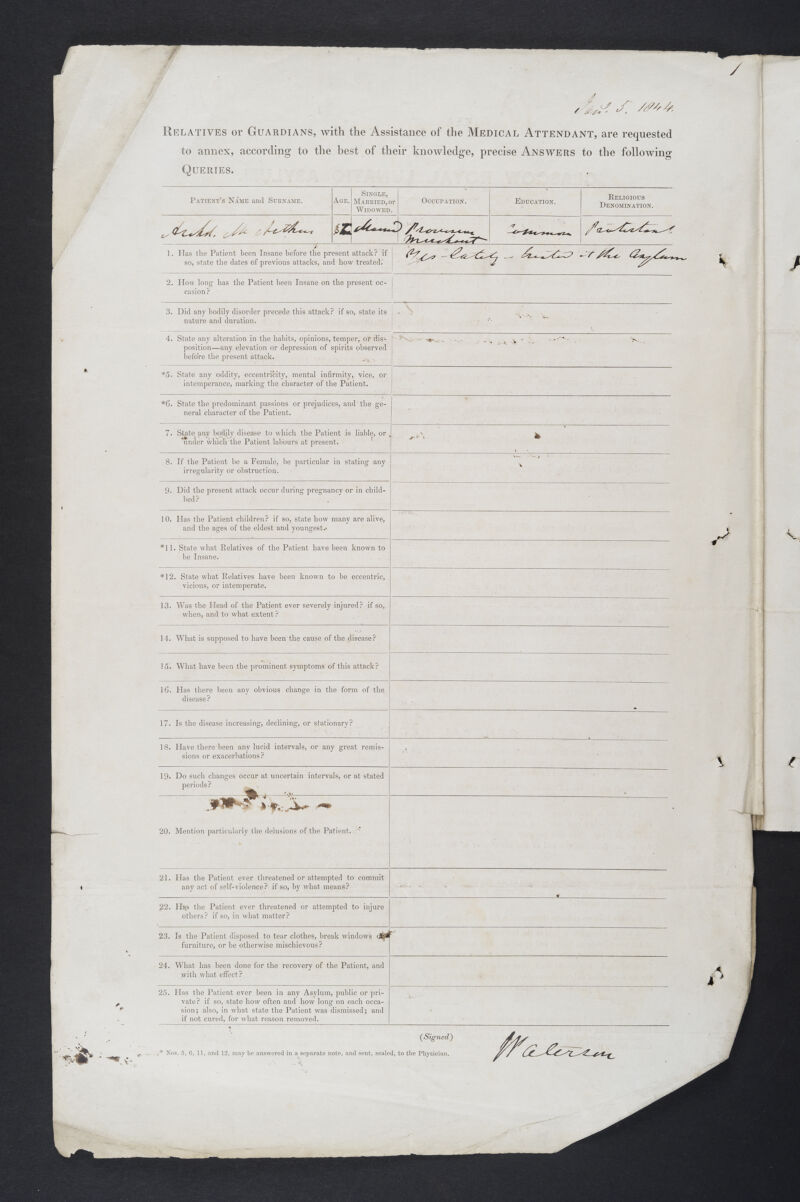 1
Jan. 5. 1844.
RELATIVES or GUARDIANS, with the Assistance of the MEDICAL ATTENDANT, are requested
to annex, according to the best of their knowledge, precise ANSWERS to the following
QUERIES.
PATIENT'S NAME and SURNAME. AGE. SINGLE, MARRIED, or WIDOWED. OCCUPATION. EDUCATION. RELIGIOUS DENOMINATION.
Archd. Mc Arthur Married Provision Merchant Common Protestant
1. Has the Patient been Insane before the present attack? if
so, state the dates of previous attacks, and how treated.
Yes - Lately - treated at the Asylum
2. How long has the Patient been Insane on the present oc-
casion?
3. Did any bodily disorder precede this attack? if so, state its
nature and duration.
4. State any alteration in the habits, opinions, temper, or dis-
position—any elevation or depression of spirits observed
before the present attack.
*5. State any oddity, eccentricity, mental infirmity, vice, or
intemperance, marking the character of the Patient.
*6. State the predominant passions or prejudices, and the ge-
neral character of the Patient.
7. State any bodily disease to which the Patient is liable, or
under which the Patient labours at present.
8. If the Patient be a Female, be particular in stating any
irregularity or obstruction.
9. Did the present attack occur during pregnancy or in child-
bed?
10. Has the Patient children? if so, state how many are alive,
and the ages of the eldest and youngest.
*11. State what Relatives of the Patient have been known to
be Insane.
*12. State what Relatives have been known to be eccentric,
vicious, or intemperate.
13. Was the Head of the Patient ever severely injured? if so,
when, and to what extent?
14. What is supposed to have been the cause of the disease?
15. What have been the prominent symptoms of this attack?
16. Has there been any obvious change in the form of the
disease?
17. Is the disease increasing, declining, or stationary?
18. Have there been any lucid intervals, or any great remis-
sions or exacerbations?
19. Do such changes occur at uncertain intervals, or at stated
periods?
20. Mention particularly the delusions of the Patient.
21. Has the Patient ever threatened or attempted to commit
any act of self-violence? if so, by what means?
22. Has the Patient ever threatened or attempted to injure
others? if so, in what matter?
23. Is the Patient disposed to tear clothes, break windows or
furniture, or be otherwise mischievous?
24. What has been done for the recovery of the Patient, and
with what effect?
25. Has the Patient ever been in any Asylum, public or pri-
vate? if so, state how often and how long on each occa-
sion; also, in what state the Patient was dismissed; and
if not cured, for what reason removed.
(Signed)
* Nos. 5, 6, 11, and 12, may be answered in a separate note, and sent, sealed, to the Physician.
Waterson